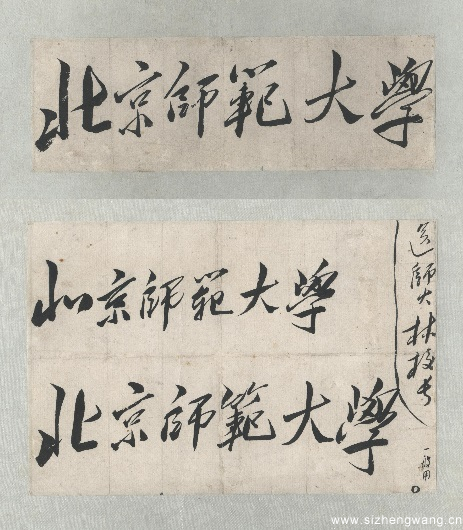 北京師範大學
北京師範大學
北京師範大學
送師大林校长
一般用
www.sizhengwang.cn